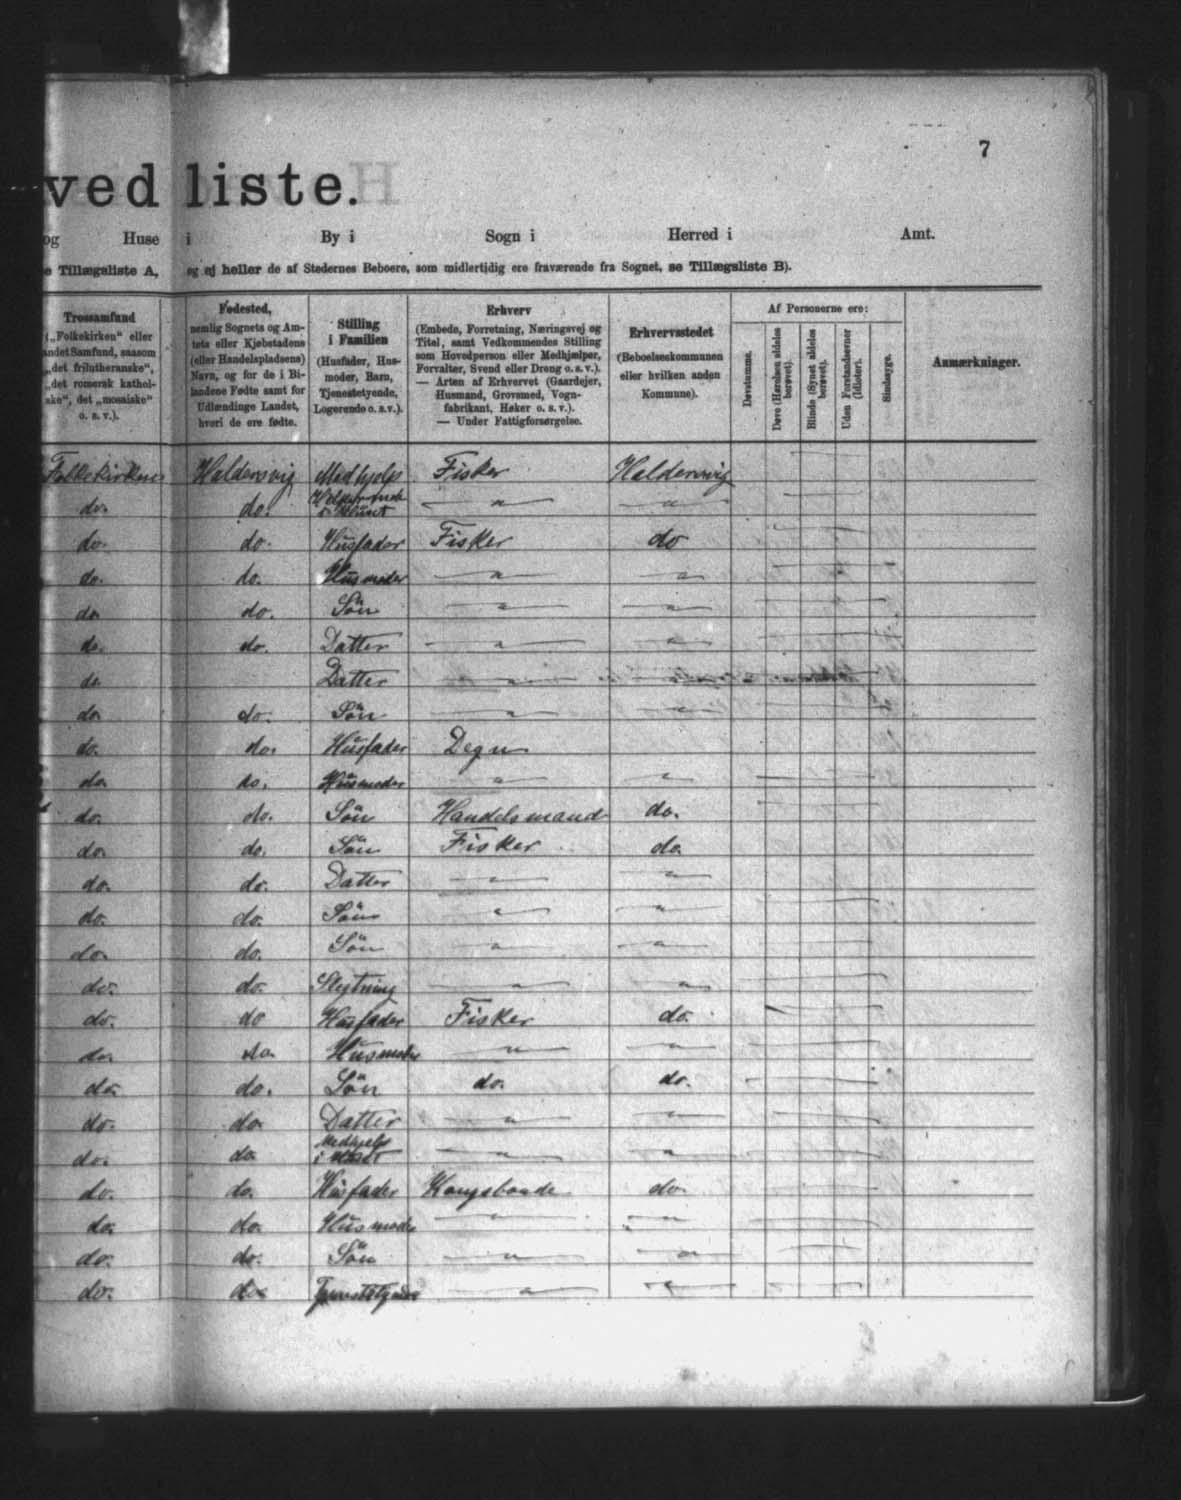 7
ved liste.
og Huse i By i Sogn i Herred i Amt.
e Tillægsliste A, og ej heller de af Stedernes Beboere, som midlertidig ere fraværende fra Sognet, se Tillægsliste B).
Trossamfund
(„Folkekirken“ eller
andet Samfund, saasom
„det frilutheranske“,
„det romersk kathol-
ske“, det „mosaiske“
o. s. v.).
Fødested,
nemlig Sognets og Am-
tets eller Kjøbstadens
(eller Handelspladsens)
Navn, og for de i Bi-
landene Fødte samt for
Udlændinge Landet,
hvori de ere fødte.
Stilling
i Familien
(Husfader, Hus-
moder, Barn,
Tjenestetyende,
Logerende o. s. v.).
Erhverv
(Embede, Forretning, Næringsvej og
Titel, samt Vedkommendes Stilling
som Hovedperson eller Medhjælper,
Forvalter, Svend eller Dreng o. s. v.).
— Arten af Erhvervet (Gaardejer,
Husmand, Grovsmed, Vogn-
fabrikant, Høker o. s. v.).
— Under Fattigforsørgelse.
Erhvervsstedet
(Beboelseskommunen
eller hvilken anden
Kommune).
Af Personerne ere:
Døvstumme.
Døve (Hørelsen aldeles
berøvet).
Blinde (Synet aldeles
berøvet).
Uden Forstandsevner
(Idioter).
Sindssyge.
Anmærkninger.
Folkekirken Haldersvig Medhjelp Fisker Haldersvig
do. do. i Huset — " — — " —
do. do. Husfader Fisker do
do. do. Husmoder — " — — " —
do do. Sön — " — — " —
do. do. Datter — " — — " —
do. Datter — " —
do do. Sön — " — — " —
do. do. Husfader Degn
do. do. Husmoder — " — — " —
do. do. Sön Handelsmand do.
do. do. Sön Fisker do.
do. do. Datter — " — — " —
do. do. Sön — " — — " —
do. do. Sön — " — — " —
do. do. Slegtning — " — — " —
do. do Husfader Fisker do.
do. do. Husmoder — " — — " —
do. do. Sön do. do.
do. do. Datter — " — — " —
do. do. Medhjelp i Huset — " — — " —
do. do. Husfader Kongsbonde do.
do. do. Husmoder — " — — " —
do. do. Sön — " — — " —
do. do. — " — — " —